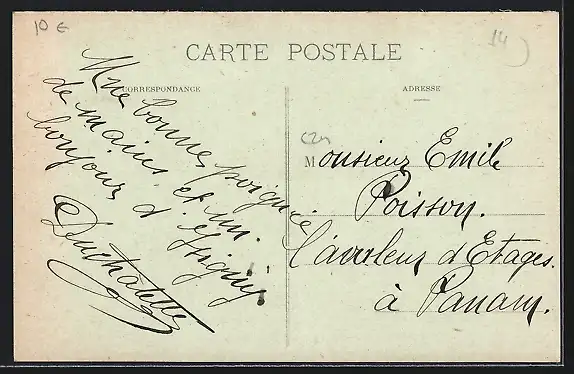 10 €
14
CARTE POSTALE
CORRESPONDANCE
ADRESSE
Une bonne poignée
de mains et un
bonjour d'Isigny
Duchatelle
Monsieur Emile
Poisson.
l'avaleur d'Etages.
à Panam.